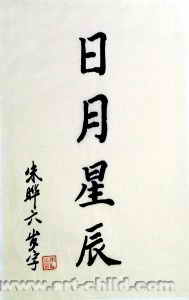 日月星辰
朱晔六岁字
www.art-child.com